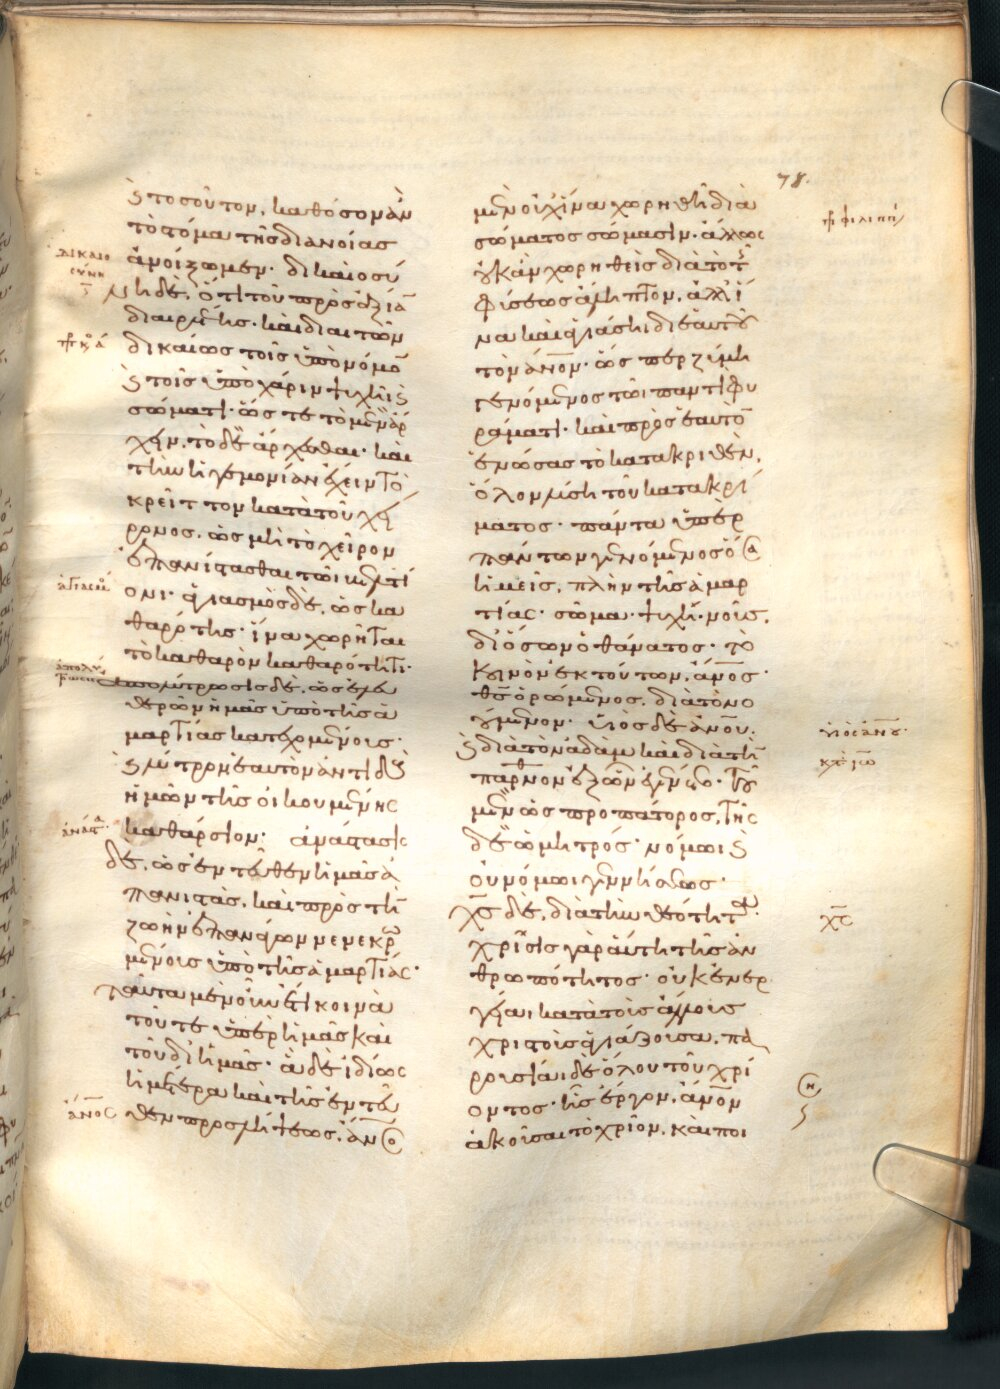 ϗ τοσοῦτον, καθόσον ἂν
τὸ στόμα τῆς διανοίας
ἀνοίξωμεν· δικαιοσύ
νη δὲ, ὅτι τοῦ πρὸς ἀξίαν
διαιρέτης· καὶ διαιτῶν
δικαίως τοῖς ὑπὸ νόμον
ϗ τοῖς ὑπὸ χάριν ψυχῆι ϗ
σώματι· ὥστε τὸ μὲν ἄρ
χειν, τὸ δὲ ἄρχεσθαι· καὶ
τὴν ἡγεμονίαν ἔχειν τὸ
κρεῖττον κατὰ τοῦ χεί
ρονος, ὡς μὴ τὸ χεῖρον
ἐπανίστασθαι τῶι βελτί
ονι· ἁγιασμὸς δὲ, ὡς κα
θαρότης· ἵνα χωρῆται
τὸ καθαρὸν καθαρότητι·
ἀπολύτρωσις δὲ, ὡς ἐλευ
θερῶν ἡμᾶς ὑπὸ τῆς ἁ
μαρτίας κατεχομένους·
ϗ λύτρον ἑαυτὸν ἀντιδιδοὺς
ἡμῶν τῆς οἰκουμένης
καθάρσιον· ἀνάστασις
δὲ, ὡς ἐντεῦθεν ἡμᾶς ἀ
πανιστὰς, καὶ πρὸς τὴν
ζωὴν ἐπανάγων νενεκρω
μένους ὑπὸ τῆς ἁμαρτίας·
ταῦτα μὲν οὖν ἔτι κοινὰ
τοῦ τε ὑπὲρ ἡμᾶς καὶ
τοῦ δι' ἡμᾶς· ἃ δὲ ἰδίως
ἡμέτερα καὶ τῆς ἐντεῦ
θεν προσλήψεως, ἄνος
μὲν οὐχ ἵνα χωρηθῆι διὰ
σώματος σώμασιν· ἄλλως
οὐκ ἂν χωρηθεὶς διὰ τὸ τῆς
φύσεως ἄληπτον, ἀλλ' ἵ
να καὶ ἁγιάσηι δι' ἑαυτοῦ
τὸν ἄνον· ὥσπερ ζύμη
γενόμενος τῶι παντὶ φυ
ράματι· καὶ πρὸς ἑαυτὸν
ἑνώσας τὸ κατακριθὲν,
ὅλον λύσηι τοῦ κατακρί
ματος· πάντα ὑπὲρ
πάντων γενόμενος ὅσα
ἡμεῖς, πλὴν τῆς ἁμαρ
τίας· σῶμα· ψυχή· νοῦς,
δι' ὅσων ὁ θάνατος· τὸ
κοινὸν ἐκ τούτων, ἄνος·
θς ὁρώμενος, διὰ τὸ νο
ούμενον· υἱὸς δὲ ἀνου,
ϗ διὰ τὸν ἀδὰμ καὶ διὰ τὴν
παρθένον ἐξ ὧν ἐγένετο· τοῦ
μὲν ὡς προπάτορος, τῆς
δὲ ὡς μητρός· νόμωι ϗ
οὐ νόμωι γεννήσεως·
χς δὲ, διὰ τὴν θεότητα·
χρῖσις γὰρ αὕτη τῆς ἀν
θρωπότητος· οὐκ ἐνερ
γείαι κατὰ τοὺς ἄλλους
χριστοὺς ἁγιάζουσα, πα
ρουσίαι δὲ ὅλου τοῦ χρί
οντος· ἧς ἔργον, ἄνον
ἀκοῦσαι τὸ χρῖον, καὶ ποι
78.
δικαιο
σύνη
ἁγιασμός
ἀπολύ
τρωσις
ἀνάστα
ἄνος
υἱὸς ἀνου
χς